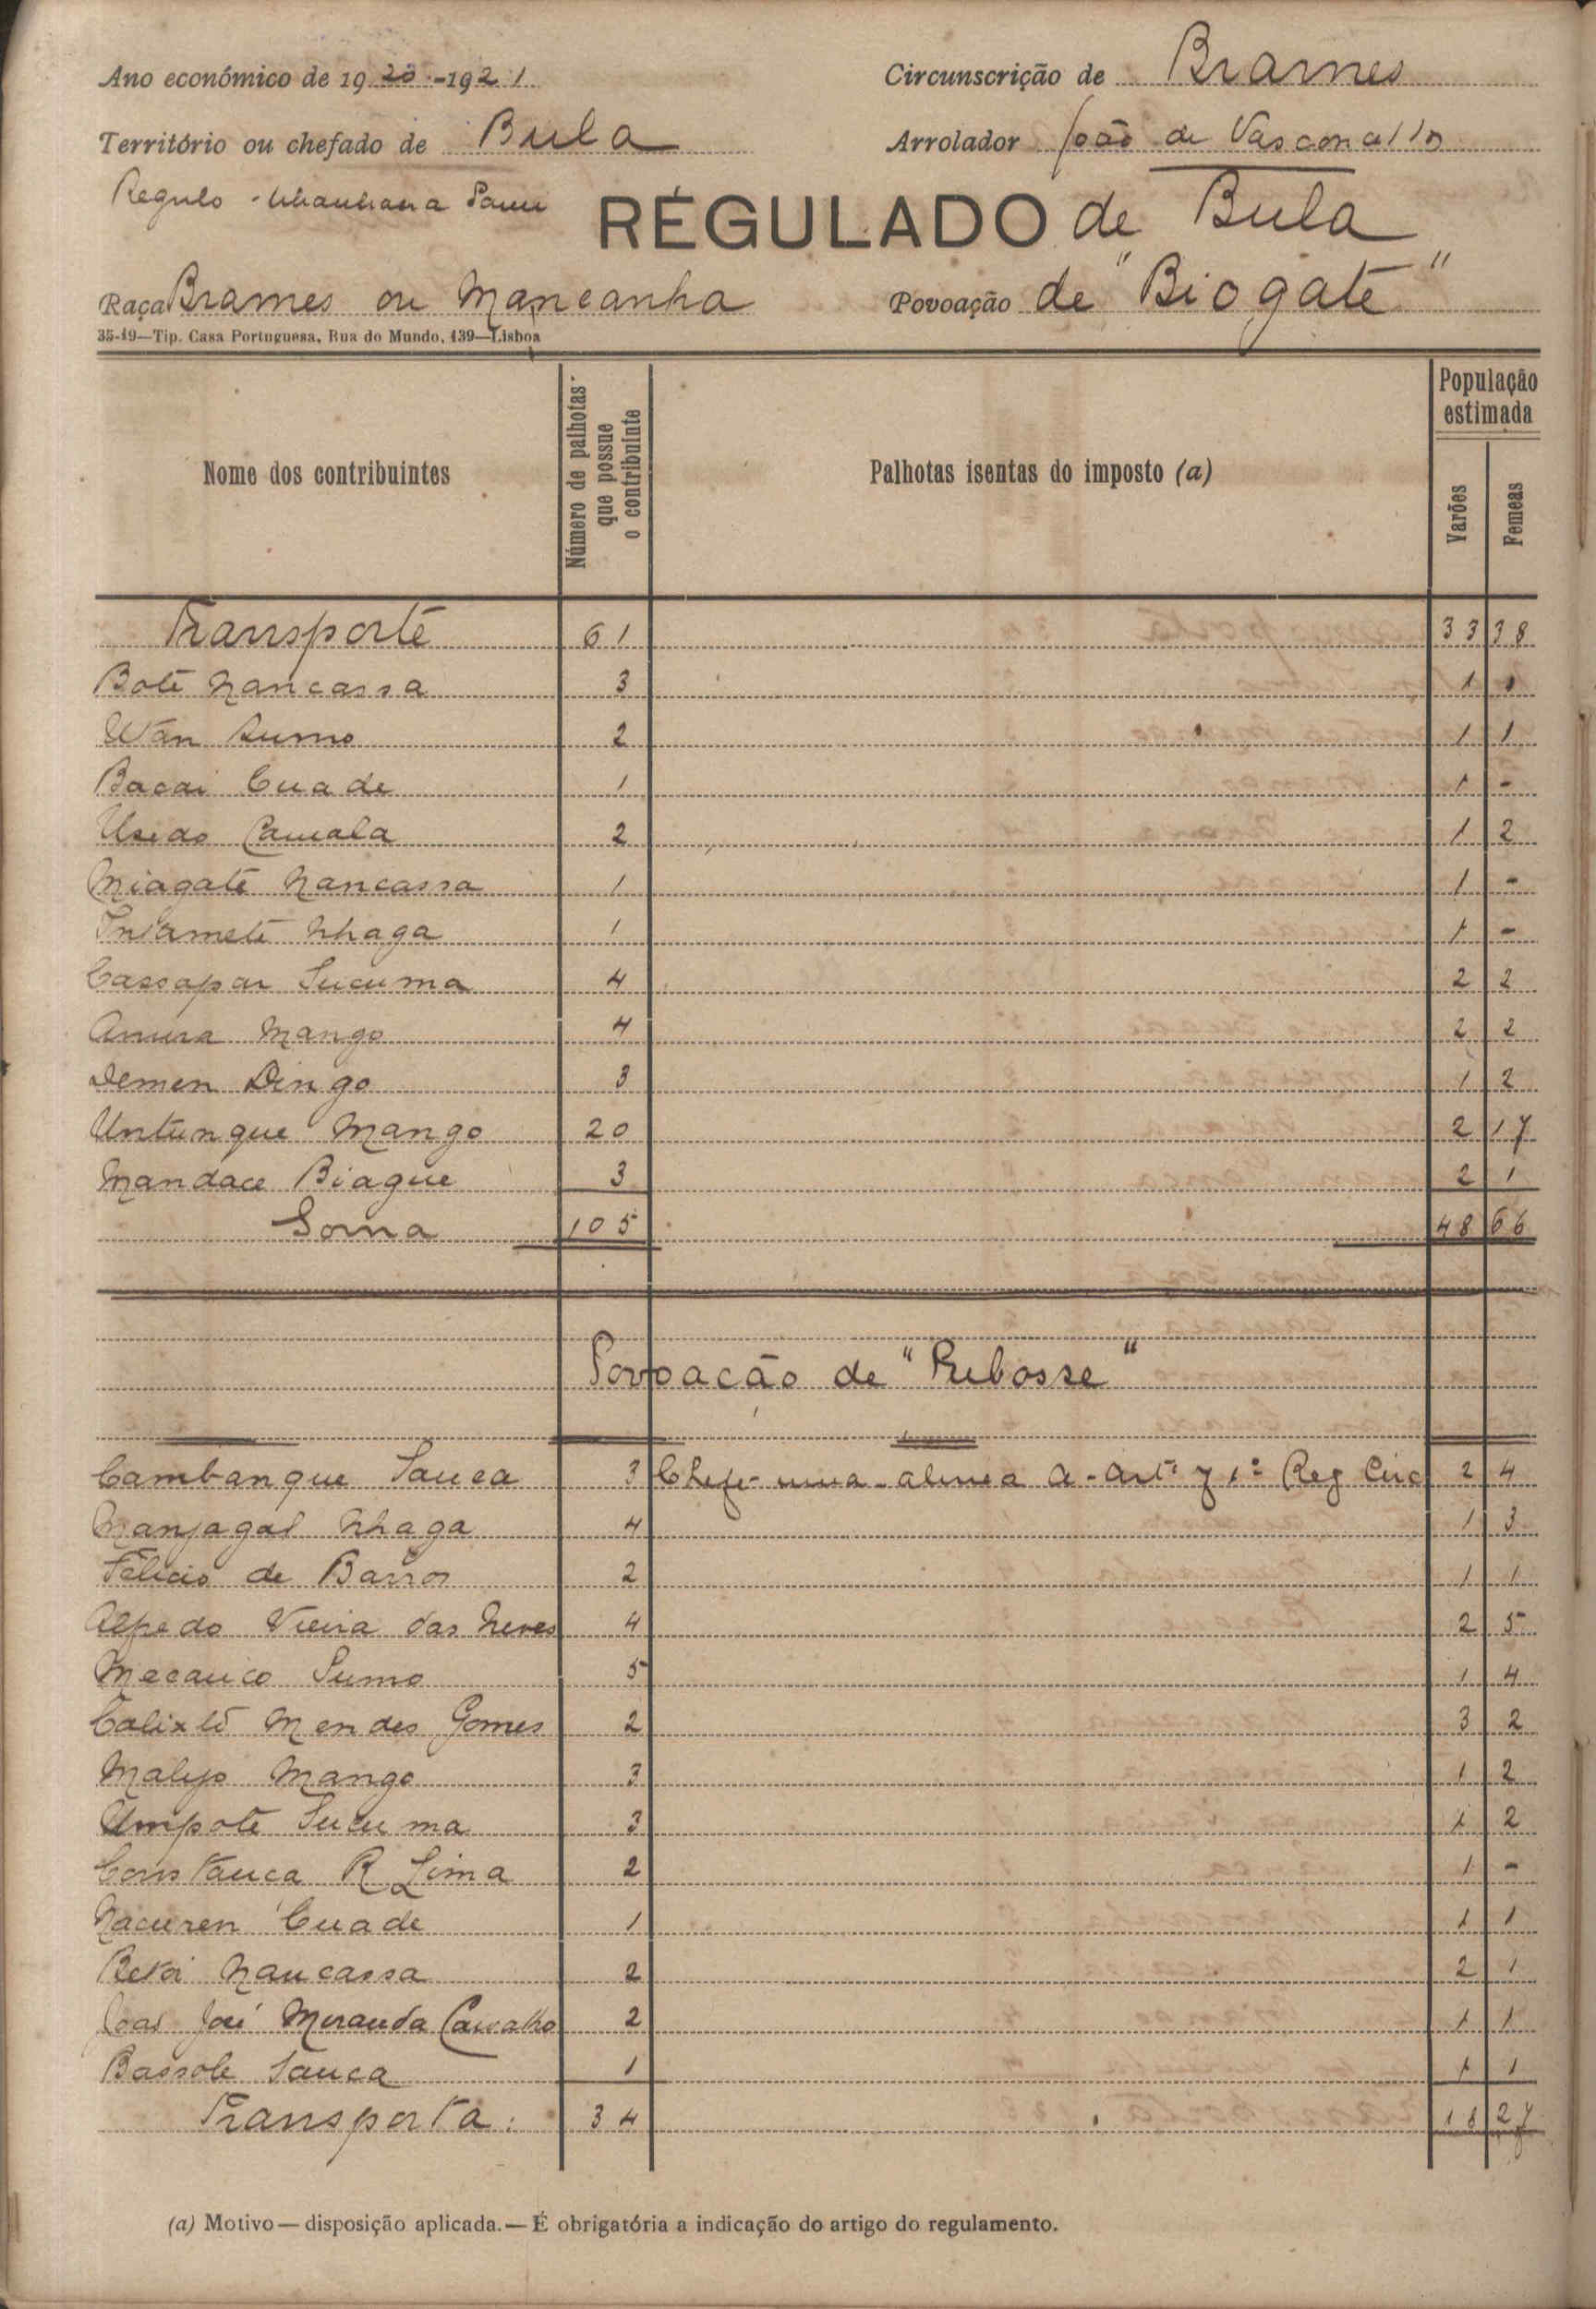 Ano económico de 1920-1921
Circunscrição de Brames
Território ou chefado de Bula
Arrolador João de Vasconcellos
Regulo
RÉGULADO de Bula
Raça Brames ou Mancanha
Povoação de "Biogate"
35-19—Tip. Casa Portuguesa, Rua do Mundo, 139—Lisboa
Nome dos contribuintes
Número de palhotas que possue o contribuinte
Palhotas isentas do imposto (a)
População estimada
Varões
Femeas
Transporte 61 33 38
Bote Nancassa 3 1 1
Wan Sumo 2 1 1
Bacai Cuade 1 1 -
Usedo Camala 2 1 2
Miagate Nancassa 1 1 -
Nhaga 1 1 -
Cassapar Sucuma 4 2 2
Anura Mango 4 2 2
Demen Dingo 3 1 2
Untunque Mango 20 2 17
Mandace Biague 3 2 1
Soma 105 48 66
Povoacão de "Rebosse"
Cambanque Sanca 3 Chefe - uma - alinea a - Artº 71º Reg Circ 2 4
Manjagal Nhaga 4 1 3
Felicio de Barros 2 1 1
Alfredo Vieira das Neves 4 2 5
Mecauico Sumo 5 1 4
Calixto Mendes Gomes 2 3 2
Mango 3 1 2
Umpote Sucuma 3 1 2
Constança R Lima 2 1 -
Nacuren Cuade 1 1 1
Betoi Nancassa 2 2 1
João José Miranda Carvalho 2 1 1
Bassole Sanca 1 1 1
Transporta: 34 18 27
(a) Motivo — disposição aplicada. — É obrigatória a indicação do artigo do regulamento.